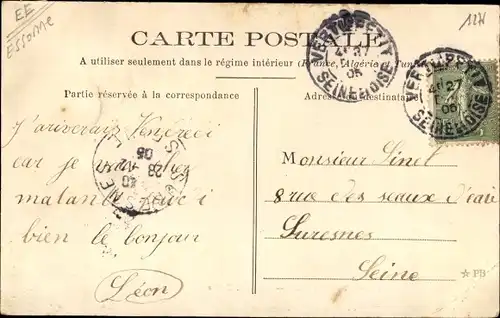 EE
Essonne
1271
CARTE POSTALE
A utiliser seulement dans le régime intérieur (France, Algérie et Tunisie)
Partie réservée à la correspondance
Adresse du destinataire
VERT-LE-PETIT
27
05
SEINE-ET-OISE
VERT-LE-PETIT
27
05
SEINE-ET-OISE
SURESNES
28
05
J'arriverais Vendredi
car je
malan
bien le bonjour
Léon
Monsieur Linet
8 rue des seaux d'eau
Suresnes
Seine
PB